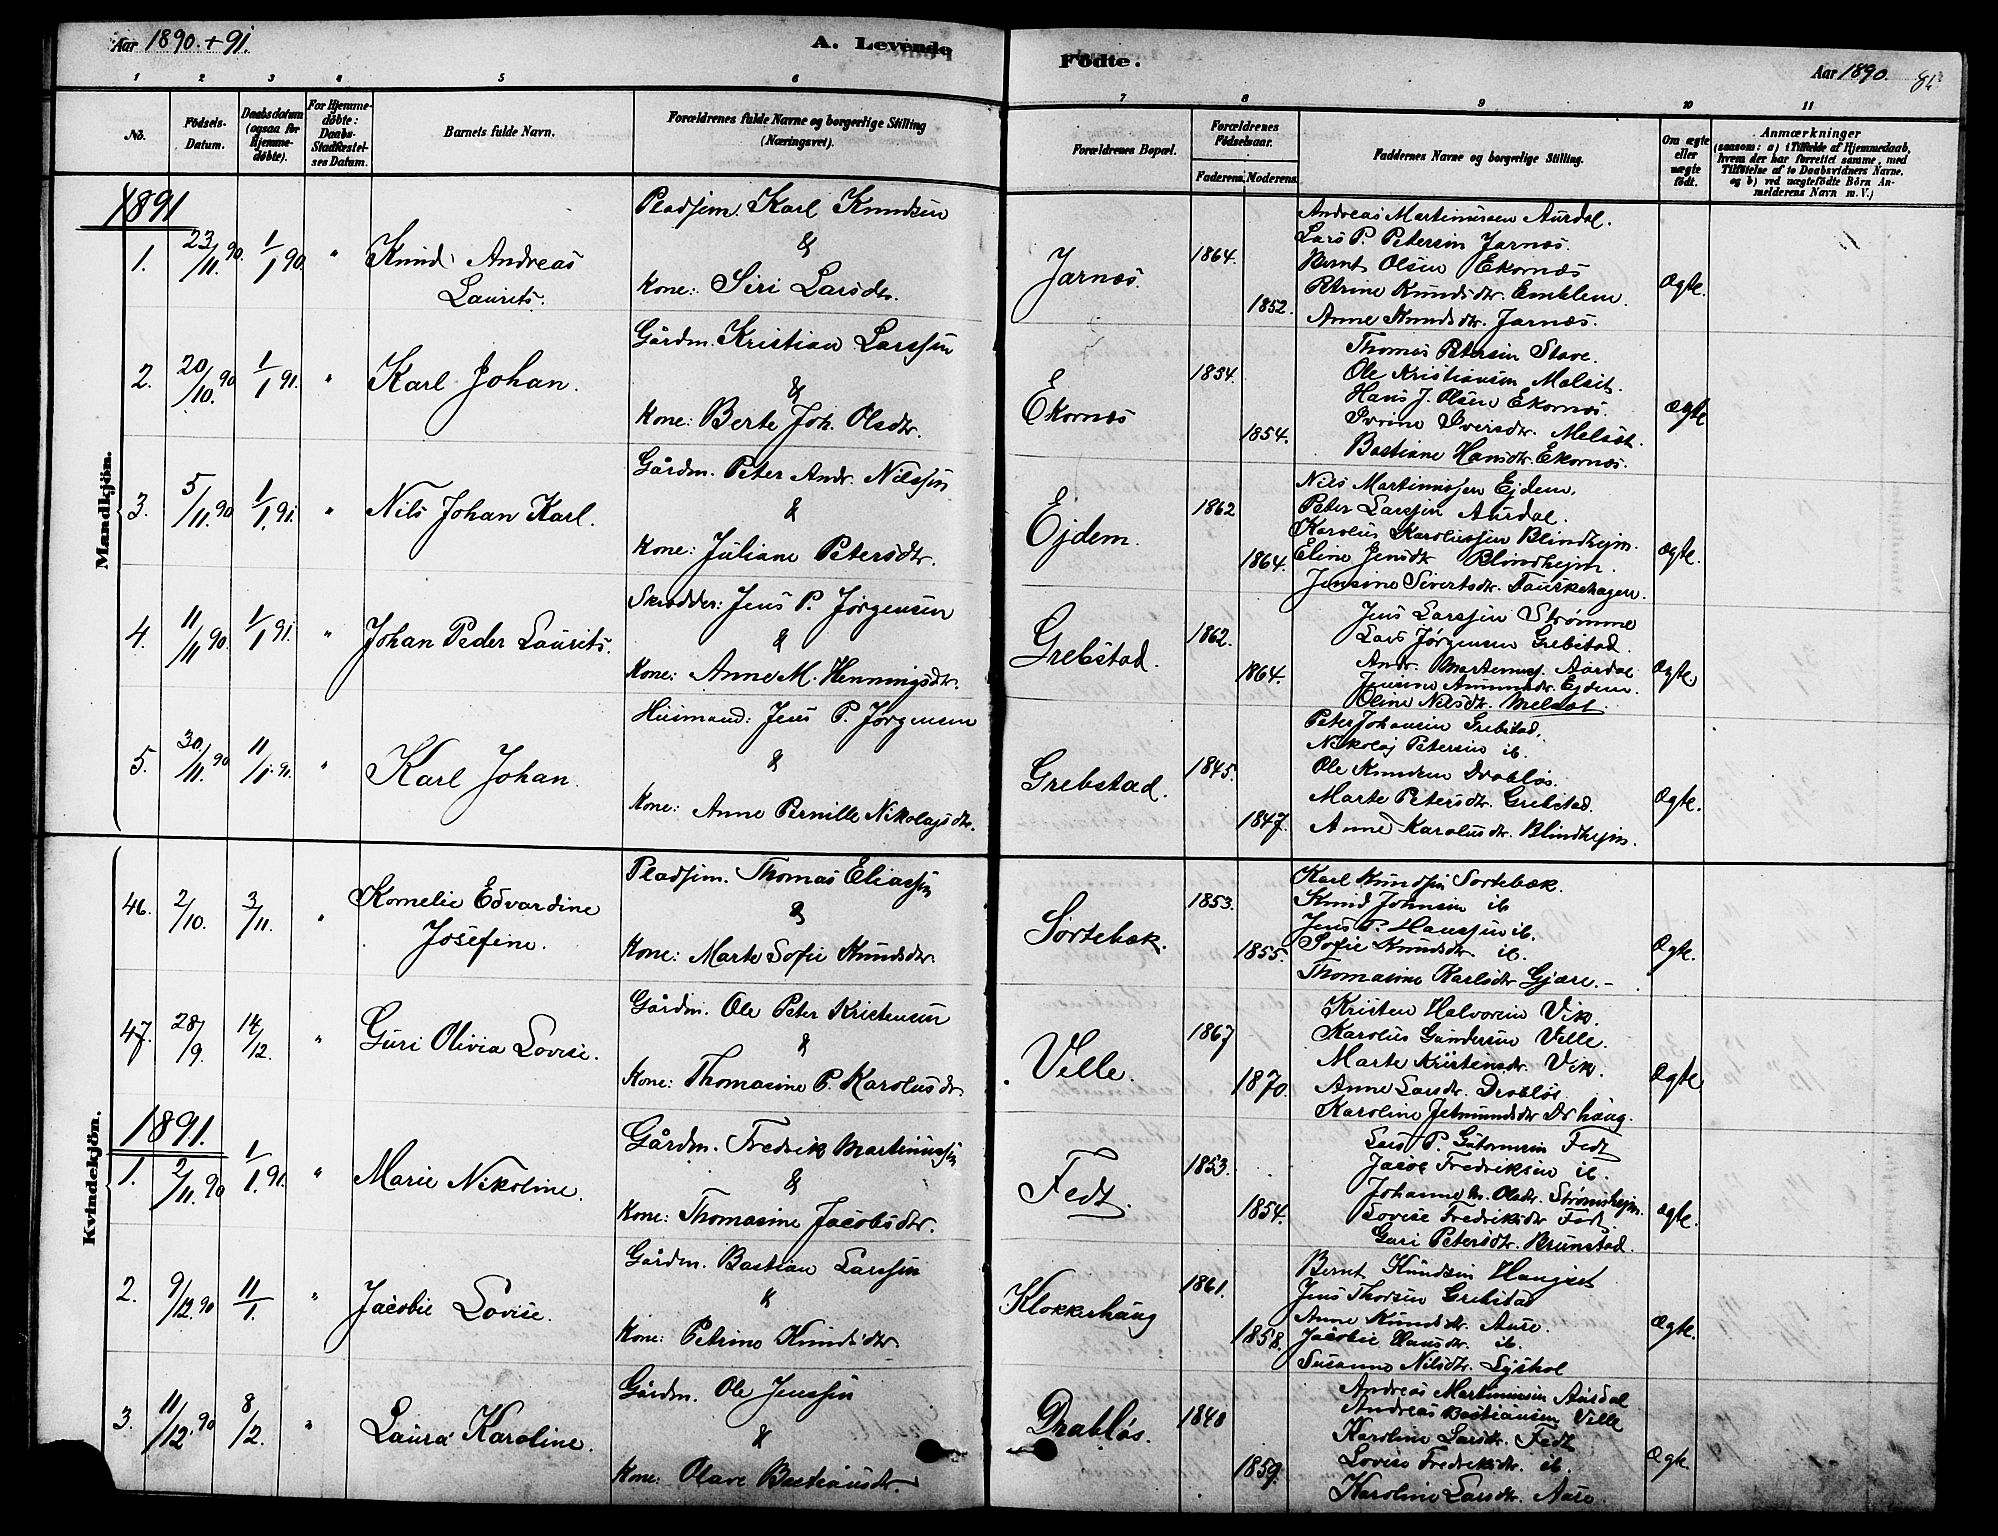 Aar 1890 + 91.
A. Levende
Födte.
Aar 1890.
1 2 3 4 5 6 7 8 9 10 11
No.
Födsels-
Datum.
Daabsdatum
(ogsaa for
Hjemme-
døbte).
For Hjemme-
døbte:
Daabs-
Stadfæstel-
ses Datum.
Barnets fulde Navn.
Forældrenes fulde Navne og borgerlige Stilling
(Næringsvei).
Forældrenes Bopæl.
Forældrenes
Födselsaar.
Faderens. Moderens.
Faddernes Navne og borgerlige Stilling.
Om ægte
eller
uægte
født.
Anmærkninger
(saasom: a) i Tilfælde af Hjemmedaab,
hvem der har forrettet samme, med
Tilföielse af to Daabsvidners Navne,
og b) ved uægtefödte Börn An-
melderens Navn m. V.)
Mandkjön.
1891
1. 23/11 90. 1/1 90 " Knud Andreas
Laurits.
Pladsm. Karl Knudsen
&
Kone: Siri Larsdtr.
Jarnæs. 1864. 1852.
Andreas Martinussen Aurdal.
Lars P. Petersen Jarnæs.
Bernt Olsen Ekornæs
Petrine Knudsdtr. Emblem.
Anne Knudsdtr. Jarnæs.
Ægte.
2. 20/10 90 1/1 91. " Karl Johan.
Gårdm. Kristian Larssen
&
Kone: Berte Joh. Olsdtr.
Ekornæs 1854. 1854.
Thomas Petersen Stave.
Ole Kristiansen Melsæt.
Hans J. Olsen Ekornæs.
Iverine Iversdtr. Melsæt.
Bastiane Hansdtr. Ekornæs.
Ægte
3. 5/11 90 1/1 91. " Nils Johan Karl.
Gårdm. Peter Andr. Nilssen
&
Kone: Juliane Petersdtr.
Ejdem. 1862 1864.
Nils Martinussen Ejdem.
Peter Larssen Aurdal.
Karolus Karolussen Blindhejm.
Eline Jensdtr Blindhejm.
Jensine Sivertsdtr. Tauskehagen.
Ægte.
4. 11/11 90. 1/1 91. " Johan Peder Laurits.
Skrædder: Jens P. Jørgensen
&
Kone: Anne M. Henningsdtr.
Grebstad. 1862. 1864.
Jens Larssen Strømme
Lars Jørgensen Grebstad.
Andr. Martinus. Aurdal
Jensine Ejdem.
Oline Nilsdtr. Melsæt.
Ægte
5. 30/11 90 11/1 91. " Karl Johan.
Husmand: Jens P. Jørgensen
&
Kone: Anne Pernille Nikolajsdtr.
Grebstad. 1845. 1847.
Peter Johansen Grebstad.
Nikolaj Petersen ib.
Ole Knudsen Drabløs.
Marte Petersdtr. Grebstad.
Anne Karolusdtr. Blindhejm.
Ægte.
Kvindekjön.
46. 2/10. 3/11. " Kornelie Edvardine
Josefine.
Pladsm. Thomas Eliassen
&
Kone: Marte Sofie Knudsdtr.
Sortebæk. 1853. 1855.
Karl Knudsen Sortebæk.
Knud Johnsen ib
Jens P. Hanssen ib.
Sofie Knudsdtr ib.
Thomasine Karlsdtr Gjære. -
Ægte.
47. 28/9. 14/12. " Guri Olivia Lovise.
Gårdm. Ole Peter Kristensen
&
Kone: Thomasine P. Karolusdtr
Velle. 1867 1870.
Kristen Halvorsen Vik.
Karolus Gundersen Velle.
Marte Kristensdtr. Vik.
Anne Larsdtr. Drabløs.
Karoline Jetmundsdtr Drhaug.
Ægte
1891.
1. 2/11 90 1/1 91. " Marie Nikoline.
Gårdm. Fredrik Martinussen
&
Kone: Thomasine Jacobsdtr.
Fedt. 1853. 1854.
Lars P. Guttormsen Fedt
Jacob Fredriksen ib.
Johanne M. Olsdtr. Strømshejm.
Lovise Fredriksdtr Fedt.
Guri Petersdtr. Brunstad.
Ægte.
2. 9/12 90 11/1 " Jacobie Lovise.
Gårdm. Bastian Larssen
&
Kone: Petrine Knudsdtr.
Klokkerhaug 1861. 1858.
Bernt Knudsen Haugset
Jens Thorsen Grebstad
Anne Knudsdtr. Aure.
Jacobie Hansdtr. ib.
Susanne Nilsdtr. Lyshol
Ægte.
3. 11/12 90 8/2. " Laura Karoline.
Gårdm. Ole Jenssen
&
Kone: Olave Bastiansdtr.
Drabløs. 1848 1859.
Andreas Martinussen Aurdal
Andreas Bastiansen Velle
Karoline Larsdtr. Fedt
Lovise Fredriksdtr. ib.
Karoline Larsdtr. Aure.
Ægte.